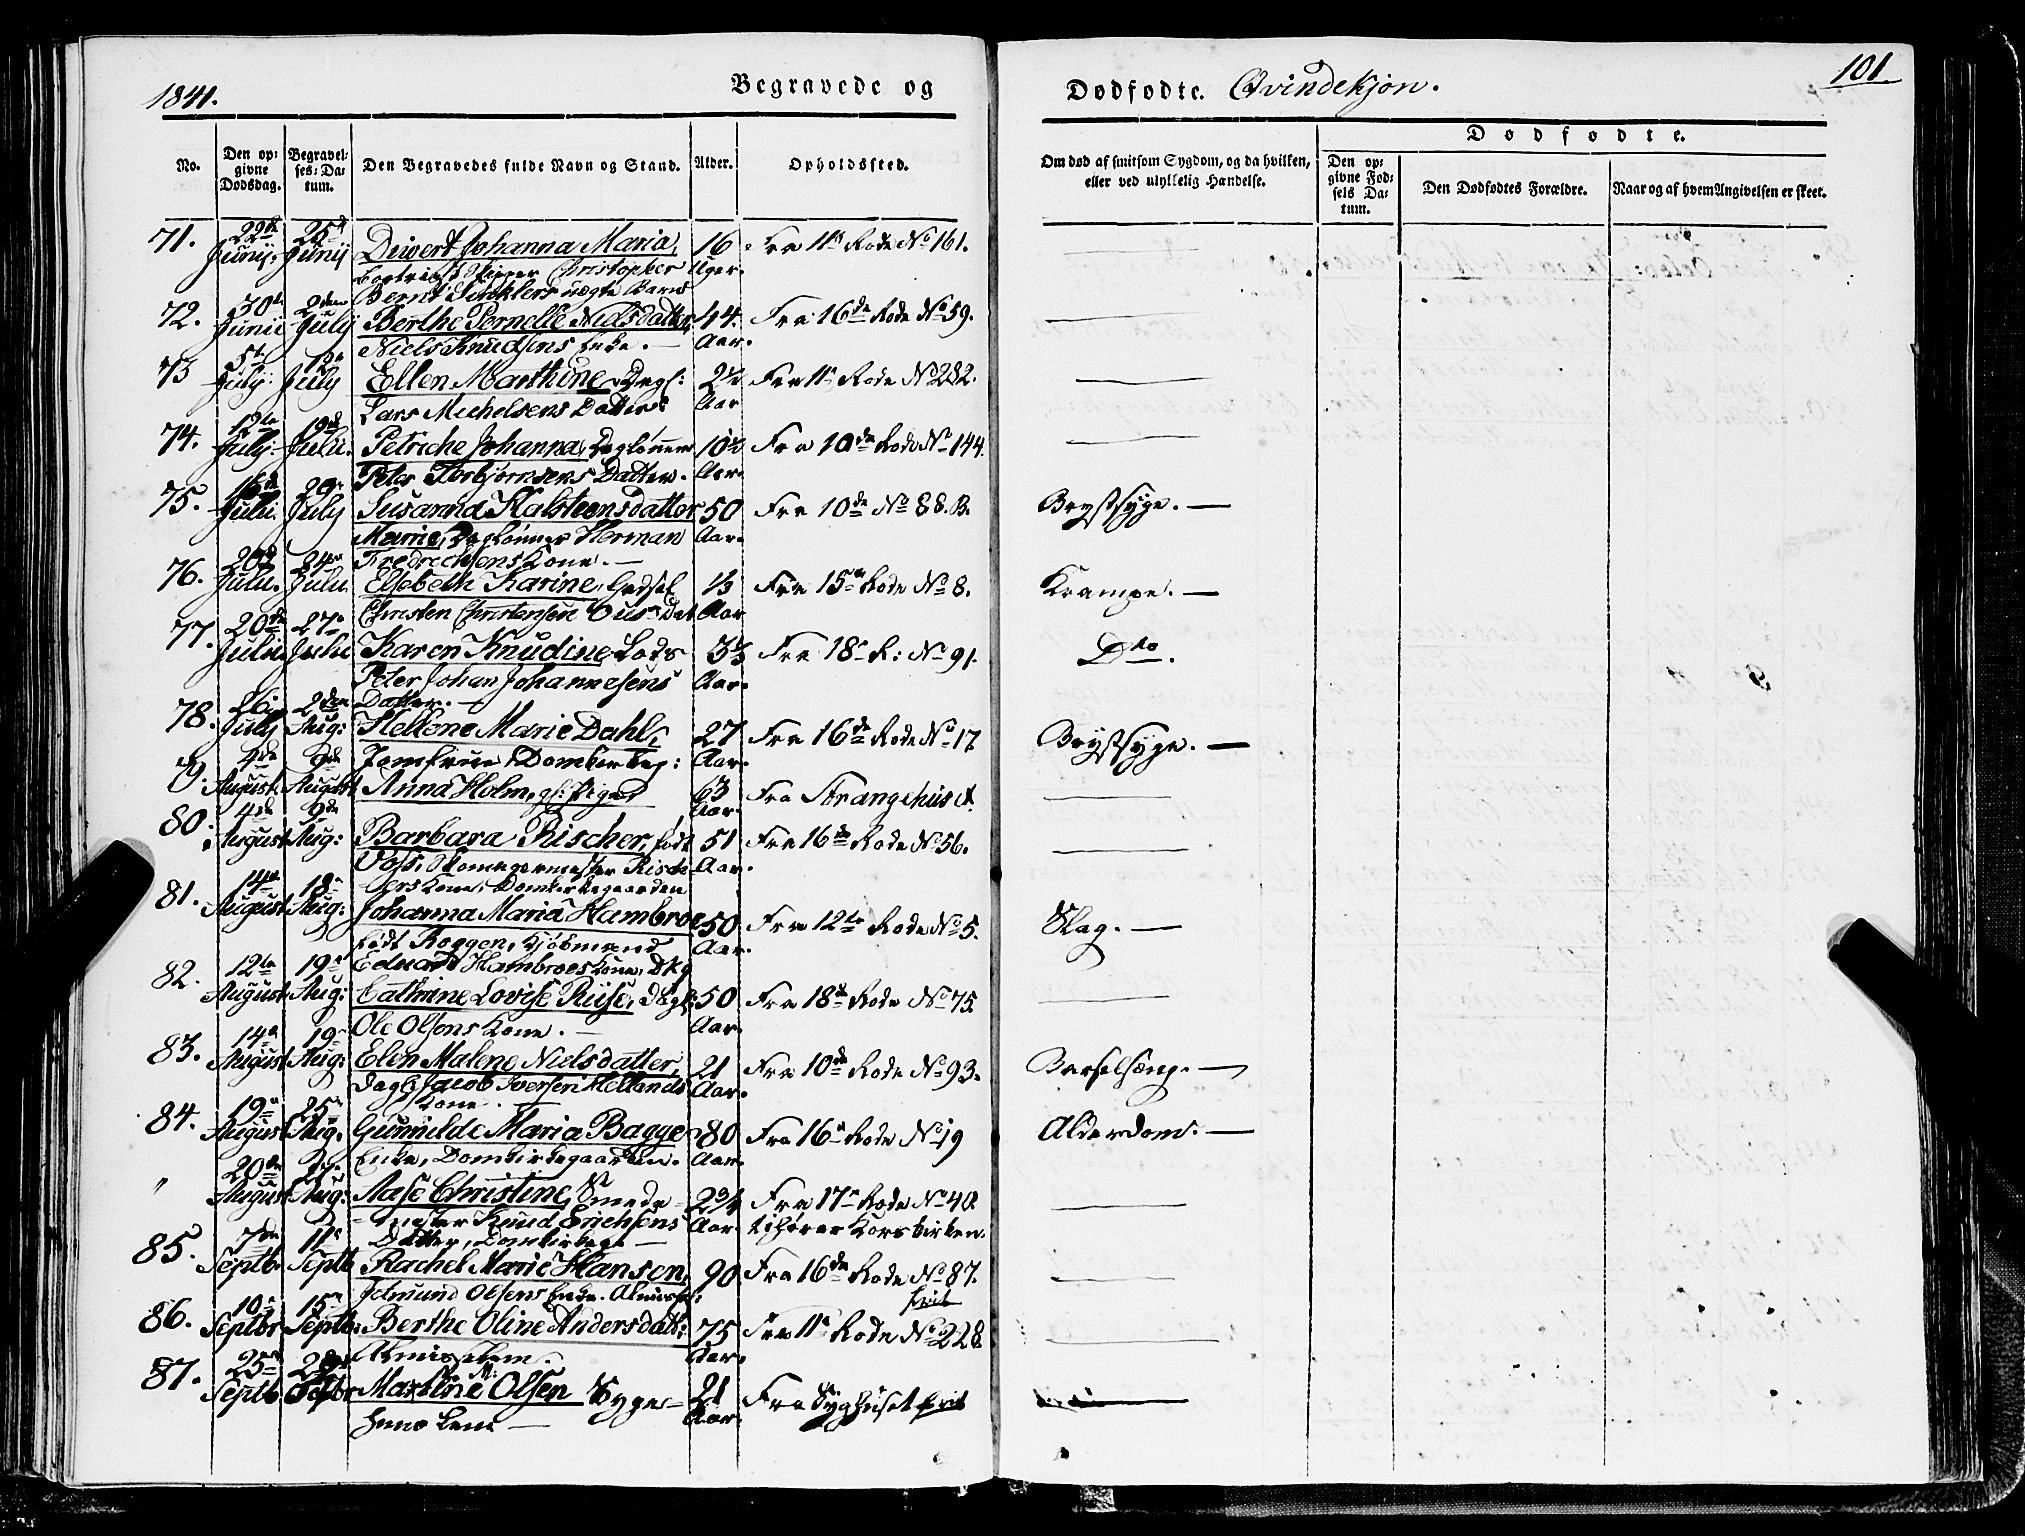 1841.
Begravede og
Dødfødte. Qvindekjøn.
101
No.
Den op-
givne
Dødsdag.
Begravel-
ses-Da-
tum.
Den Begravedes fulde Navn og Stand.
Alder.
Opholdssted.
Om død af smitsom Sygdom, og da hvilken,
eller ved ulykkelig Hændelse.
Dødfødte.
Den op-
givne Fød-
sels Da-
tum.
Den Dødfødtes Forældre.
Naar og af hvem Angivelsen er skeet.
71. 22de Junij. 25d Junij Deivert Johanna Maria, 16 Uger. Fra 11te Rode No 161.
Skipper Christopher
Bernt uægte Barn
72. 30te Junii 2den July Berthe Pernelle Nielsdatter, 44. Aar. Fra 16de Rode No 59.
Niels Knudsens Enke. —
73 5te July. 12te July Ellen Marthine, Dagl: 2½ Aar Fra 11te Rode No 282.
Lars Michelsens Datter
74. 12te July. 19de Julii. Petriche Johanna, Daglønner 10½ Aar. Fra 10de Rode No 144.
Peter Torbjørnsens Datter.
75. 16de Julii. 20de July Susanna Halsteensdatter 50 Aar. Fra 10de No 88.B. Brystsyge. —
Marrie, Daglønner Herman
Fredrechsens Kone. —
76. 20de Julii. 24de Julii. Elsebeth Karine, ⅓ Aar Fra 15de Rode No 8. Krampe. —
Christen Christensen
77. 20de Julii. 27de Julii Karen Knudine, Lods 3⅓ Aar. Fra 18de R: No 91. Dto.
Peter Johan Johannesens
Datter. —
78. 26 July 2den Aug: Hellene Marie Dahl, 27 Aar. Fra 16de Rode No 17 Brystsyge. —
Jomfrue, Domkirkeg:
9. 4de August. 9de August Anna Holm, gl: Pige 63 Aar. Fra Strangehuset.
80. 4de August 9de Aug: Barbara Rischer, født 51 Aar. Fra 16de Rode No 56.
Voss, Skomagermester Risch-
ers Kone, Domkirkegaarden
81. 14de August 18de Aug: Johanna Maria Hambroe 50. Aar. Fra 12te Rode No 5. Slag. —
født Roggen, Kjøbmand
Eduard Hambroes Kone, DKg
82. 12te August 19de Aug: Cathrine Lovise Riise, Dagl: 50 Aar. Fra 18de Rode No 75.
Ole Olsens Kone. —
83. 14de August 19de Aug: Elen Malene Nielsdatter, 21 Aar. Fra 10de Rode No 93. Barselseng. —
Dagl: Jacob Iversen Hetlands
Kone. —
84. 19de August 25de Aug. Gunnilde Maria Bagge 80 Aar. Fra 16de Rode No 19 Alderdom. —
Enke, Domkirkegaarden.
" 20de August Aug: Aase Christine, Smede- 2¾ Aar. Fra 17de Rode No 40
mester Knud Erichsens tilhører Korskirken.
Datter, Domkirkeg —
85. 7de Septb. 11te Septb Rachel Marie Hansen, 90 Fra 16de Rode No 87.
Olsens Enke. Almisse:
86. 10de Septbr 15de Septb: Berthe Oline Andersdatt: 75 Aar. Fra 11te Rode No 228 frit
Almisselem.
87. 25de Septb 28de Septbr Marthine M: Olsen Syge- 21 Aar. Fra Syghuset frit
huus Lem —